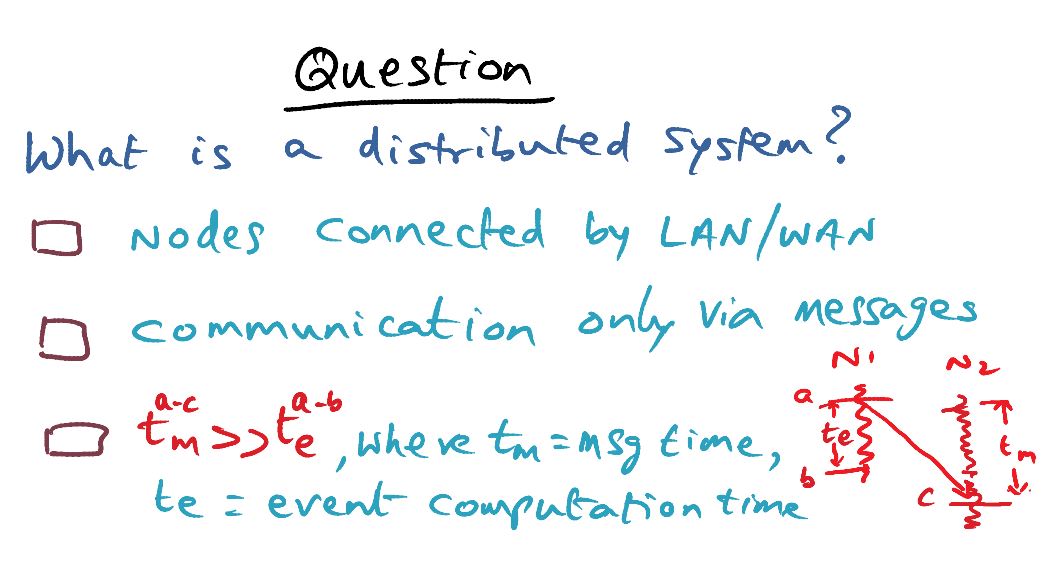 Question
What is a distributed system?
Nodes connected by LAN/WAN
Communication only via messages
N1 N2
a-c a-b
tm >> te, where tm = msg time,
te = event computation time
a
te
b
tm
c